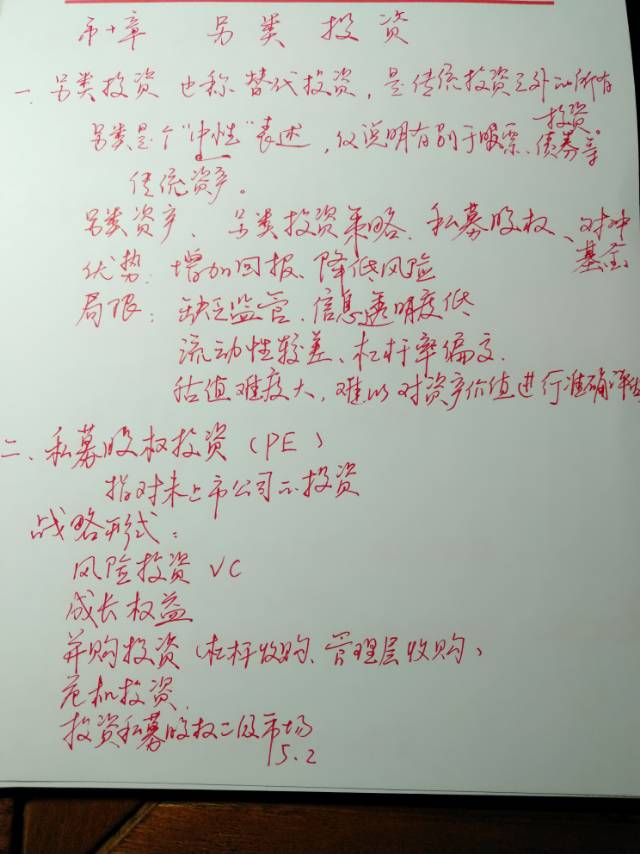 第十章 另类投资
一、另类投资 也称替代投资,是传统投资之外的所有
投资。
另类是个"中性"表述,仅说明有别于股票、债券等
传统资产。
另类资产、另类投资策略、私募股权、对冲
基金
优势:增加回报、降低风险
局限:缺乏监管、信息透明度低
流动性较差、杠杆率偏高
估值难度大,难以对资产价值进行准确评估
二、私募股权投资(PE)
指对未上市公司的投资
战略形式:
风险投资 VC
成长权益
并购投资(杠杆收购、管理层收购)
危机投资
投资私募股权二级市场
5.2